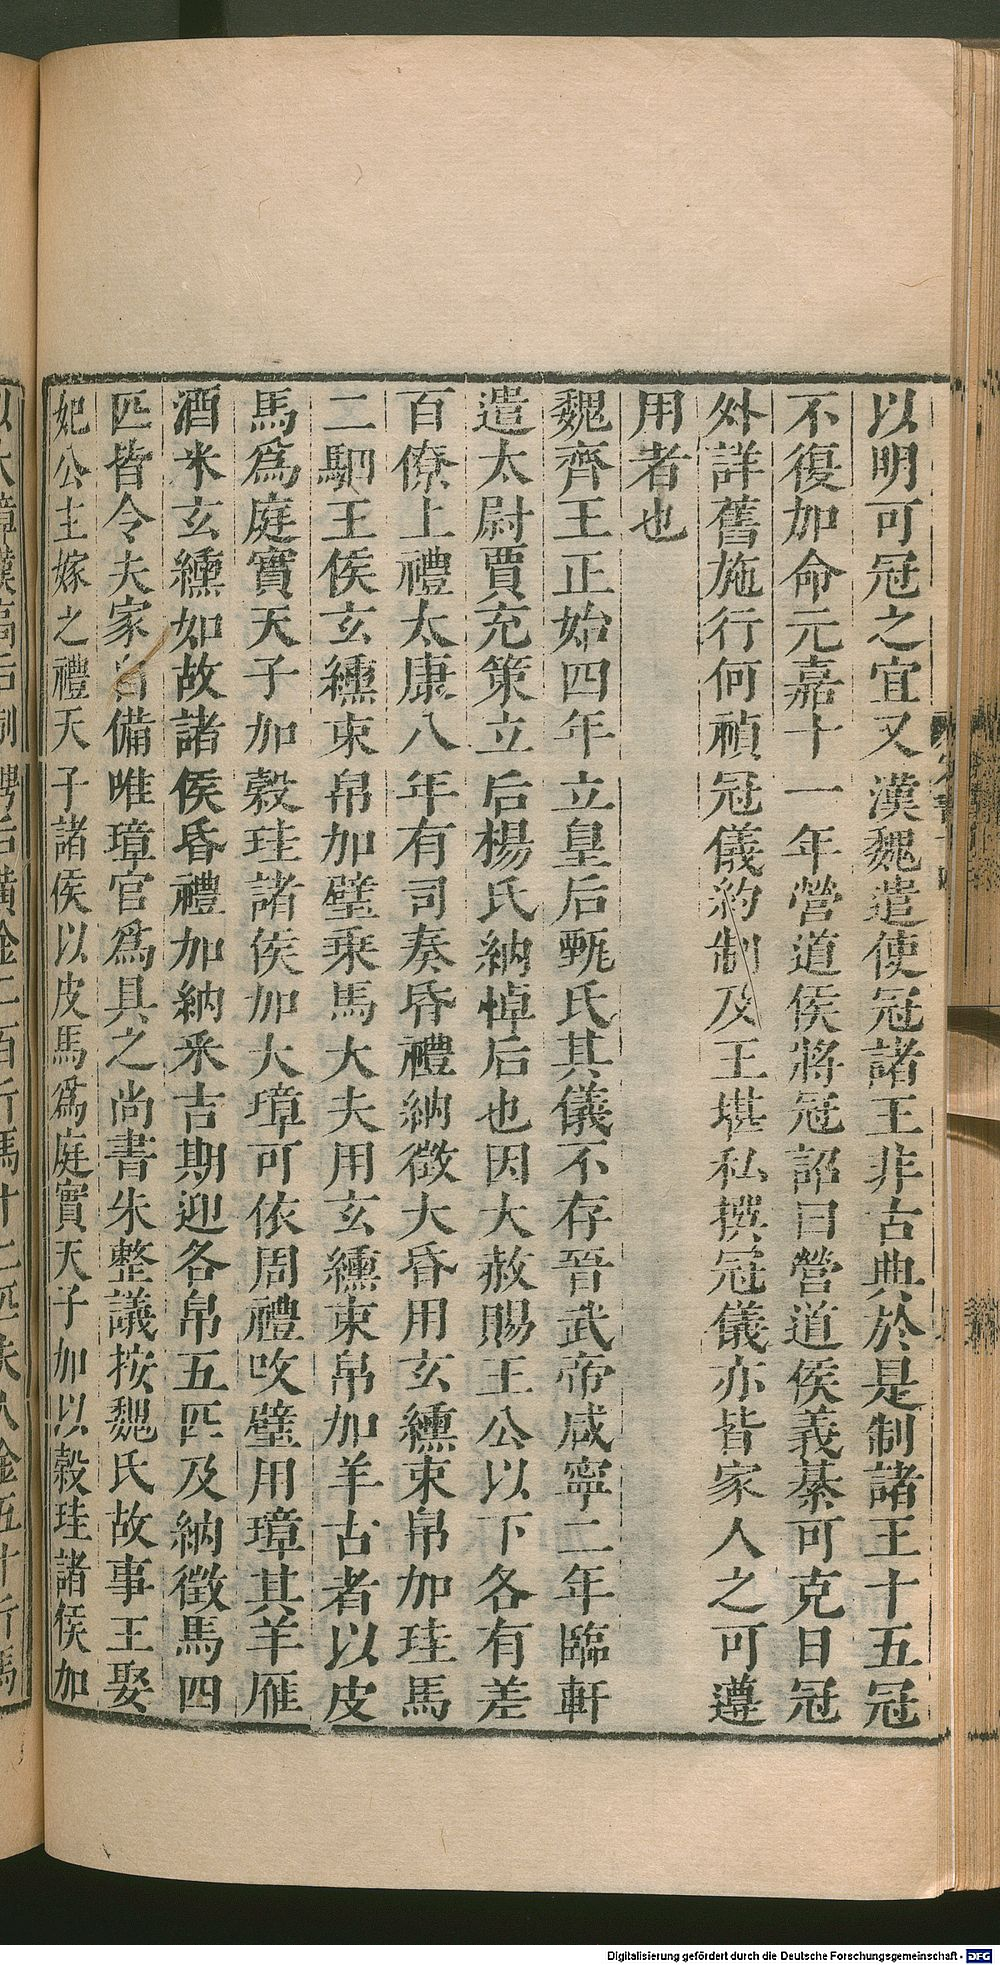 以明可冠之宜又漢魏遣使冠諸王非古典於是制諸王十五冠
不復加命元嘉十一年營道侯將冠詔曰營道侯義綦可克日冠
外詳舊施行何禎冠儀約制及王堪私撰冠儀亦皆家人之可遵
用者也
魏齊王正始四年立皇后甄氏其儀不存晉武帝咸寧二年臨軒
遣太尉賈充策立后楊氏納悼后也因大赦賜王公以下各有差
百僚上禮太康八年有司奏昏禮納徵大昏用玄纁束帛加珪馬
二駟王侯玄纁束帛加璧乘馬大夫用玄纁束帛加羊古者以皮
馬爲庭實天子加穀珪諸侯加大璋可依周禮改璧用璋其羊雁
酒米玄纁如故諸侯昏禮加納采吉期迎各帛五匹及納徵馬四
匹皆令夫家自備唯璋官爲具之尚書朱整議按魏氏故事王娶
妃公主嫁之禮天子諸侯以皮馬爲庭實天子加以穀珪諸侯加
以大璋漢高后制聘后黃金二百斤馬十二匹夫人金五十斤馬
Digitalisierung gefördert durch die Deutsche Forschungsgemeinschaft - DFG